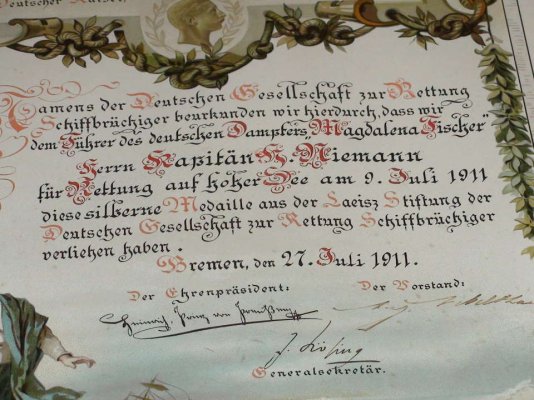 Deutscher Kaiser,
Namens der Deutschen Gesellschaft zur Rettung
Schiffbrüchiger beurkunden wir hierdurch, dass wir
dem Führer des deutschen Dampfers „Magdalena Fischer"
Herrn Kapitän H. Niemann
für Rettung auf hoher See am 9. Juli 1911
diese silberne Medaille aus der Laeisz Stiftung der
Deutschen Gesellschaft zur Rettung Schiffbrüchiger
verliehen haben.
Bremen, den 27. Juli 1911.
Der Ehrenpräsident: Der Vorstand:
Heinrich, Prinz von Preußen
Generalsekretär.